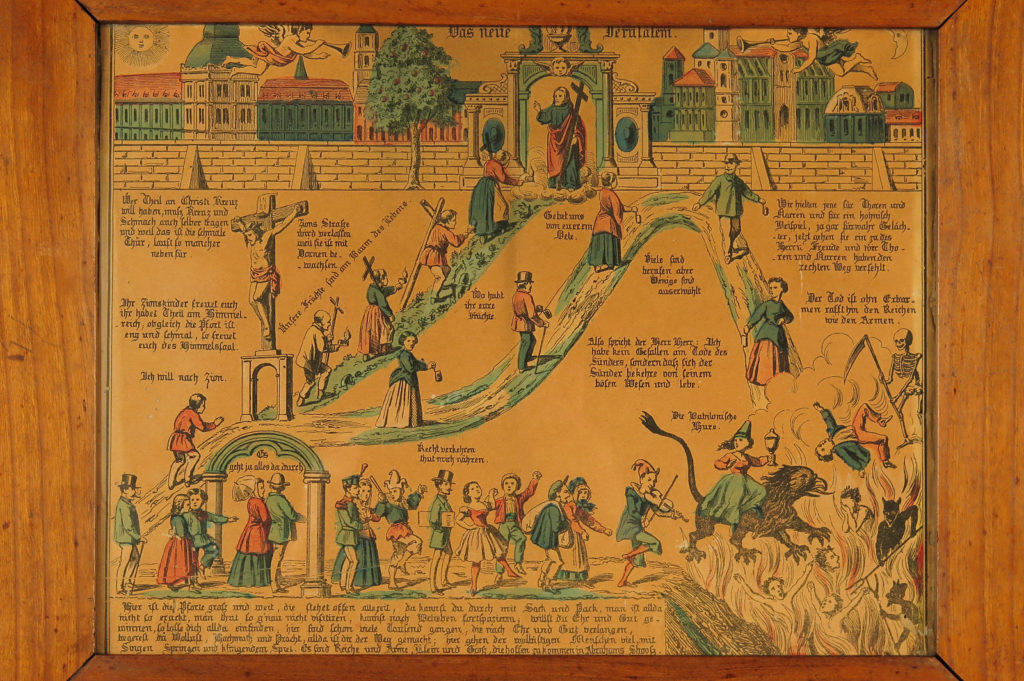 Das neue Jerusalem.
Wer Theil an Christi Kreuz
will haben, muß Kreuz und
Schmach auch selber tragen
und weil das ist die schmale
Thür, lauft so mancher
neben für.
Zions Straße
wird verlassen
weil sie ist mit
Dornen be-
wachsen.
Unsere Früchte sind am Baum des Lebens
Gebet uns
von eurem
Oele.
Wir hielten jene für Thoren und
Narren und für ein höhnisch
Beispiel, ja gar fürwahr Geläch-
ter, jetzt gehen sie ein zu des
Herrn Freude und wir Tho-
ren und Narren haben den
rechten Weg verfehlt.
Viele sind
berufen aber
Wenige sind
auserwählt
Ihr Zionskinder freuet euch
ihr habet Theil am Himmel-
reich, obgleich die Pfort ist
eng und schmal, so freuet
euch des Himmelssaal.
Wo habt
ihr eure
Früchte
Der Tod ist ohn Erbar-
men rafft hin den Reichen
wie den Armen.
Also spricht der Herr Herr: Ich
habe kein Gefallen am Tode des
Sünders, sondern daß sich der
Sünder bekehre von seinem
bösen Wesen und lebe.
Ich will nach Zion.
Die Babilonische
Hure.
Recht verkehren
thut mich nähren.
Es
geht ja alles da durch
Hier ist die Pforte groß und weit, die stehet offen allezeit, da kannst du durch mit Sack und Pack, man ist allda
nicht so exackt, man thut so g'nau nicht visitiren, kannst nach Belieben fortspaziren; willst du Ehr und Gut ge-
winnen, so lasse dich allda einfinden, hier sind schon viele Tausend gangen, die nach Ehr und Gut verlangen,
begerest du Wollust, Hochmuth und Pracht, allda ist dir der Weg gemacht; hier gehen der wollüstigen Menschen viel, mit
Singen Springen und klingendem Spiel. Es sind Reiche und Arme, Klein und Groß, die hoffen zu kommen in Abrahams Schooß.